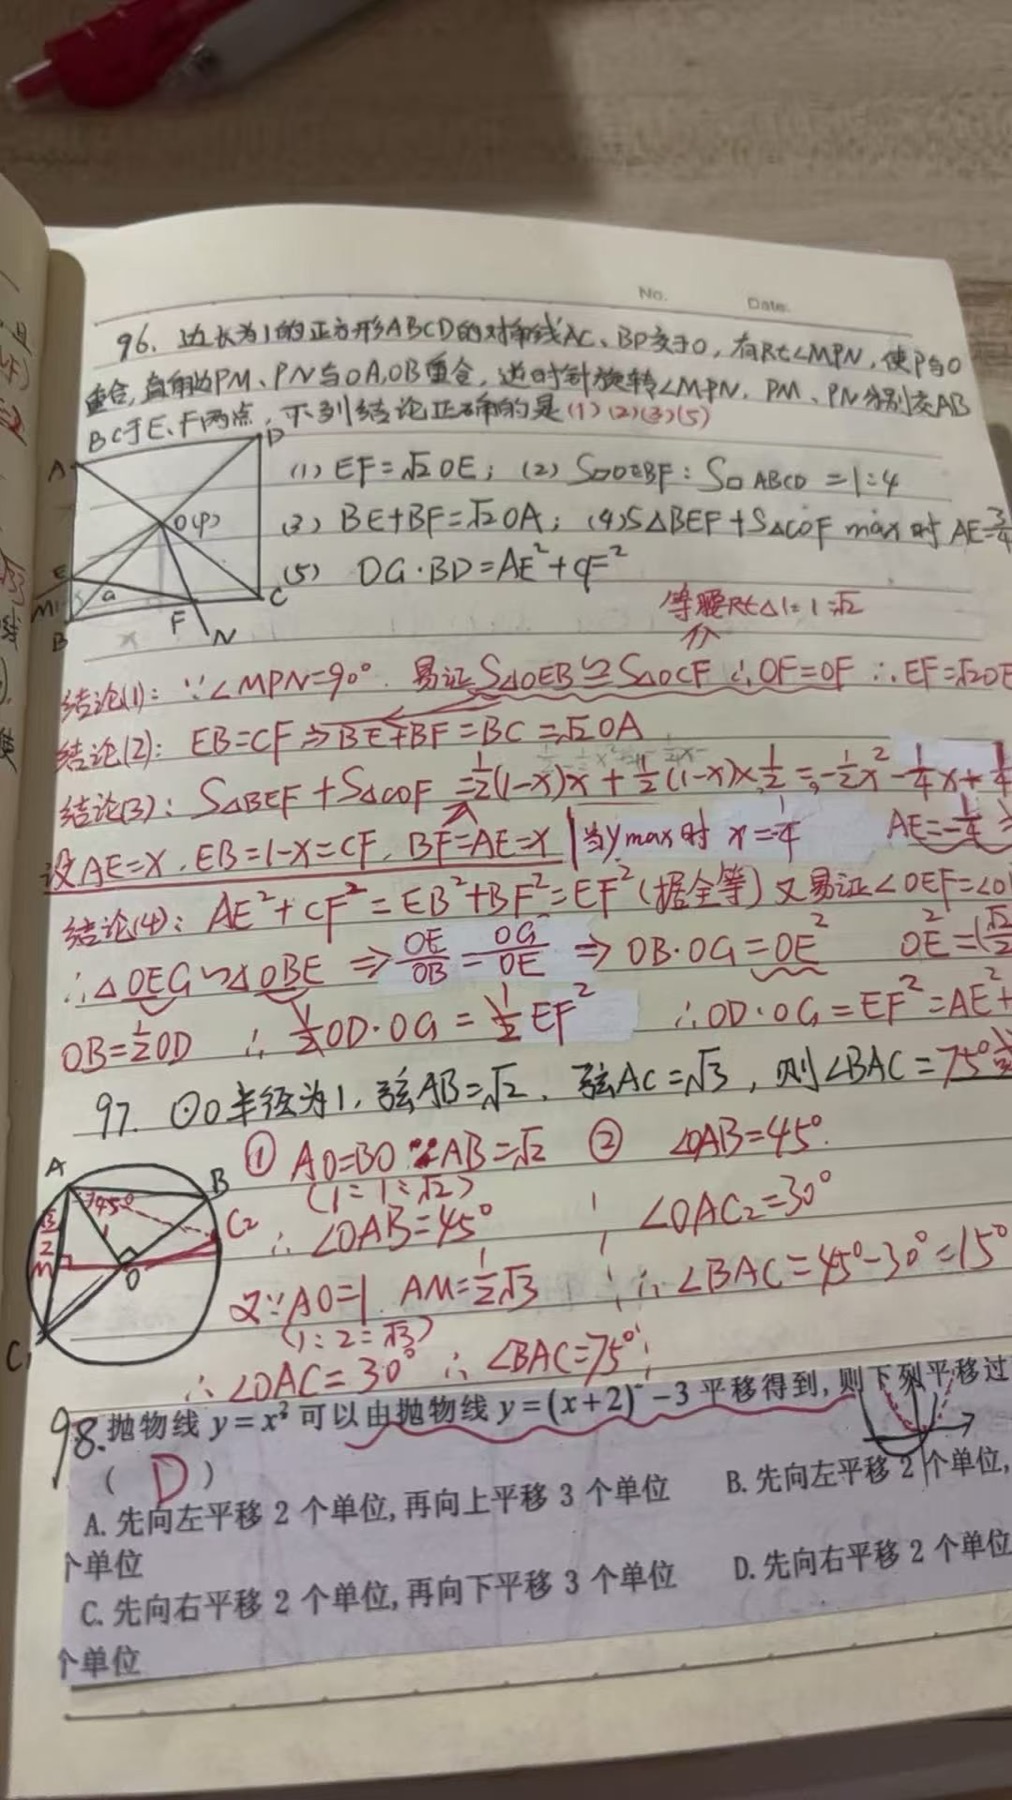 No. Date.
96. 边长为1的正方形ABCD的对角线AC、BD交于O,有Rt∠MPN,使P与O
重合,直角边PM、PN与OA,OB重合,逆时针旋转∠MPN,PM、PN分别交AB
BC于E、F两点,下列结论正确的是(1)(2)(3)(5)
(1) EF=√2OE; (2) S□OEBF:S□ABCD=1:4
(3) BE+BF=√2OA; (4)S△BEF+S△COF max时 AE=3/4
(5) OG·BD=AE²+CF²
A D O(P) E M G B F N C
等腰Rt△1:1:√2
结论(1): ∵∠MPN=90°. 易证S△OEB≌S△OCF ∴OF=OF ∴EF=√2OE
结论(2): EB=CF⇒BE+BF=BC=√2OA
结论(3): S△BEF+S△COF=1/2(1-x)x+1/2(1-x)×1/2=-1/2x²-1/4x+1/4
设AE=x,EB=1-x=CF,BF=AE=x | 当y max时 x=-1/4 AE=-1/4
结论(4): AE²+CF²=EB²+BF²=EF²(据全等) 又易证∠OEF=∠O
∴△OEG∽△OBE ⇒ OE/OB=OG/OE ⇒ OB·OG=OE² OE²=(√2/2
OB=1/2OD ∴ 1/2OD·OG=1/2EF² ∴OD·OG=EF²=AE²+
97. ⊙O半径为1,弦AB=√2,弦AC=√3,则∠BAC=75°或
① AO=BO ∵AB=√2 ② ∠OAB=45°.
(1:1:√2)
∴∠OAB=45° ∠OAC2=30°
又∵AO=1 AM=1/2√3 ∴∠BAC=45°-30°=15°
(1:2:√3)
∴∠OAC=30° ∴∠BAC=75°
A B C2 45° 1 √3/2 M O C1
98.抛物线 y=x² 可以由抛物线 y=(x+2)²-3 平移得到,则下列平移过
( D )
A.先向左平移 2 个单位,再向上平移 3 个单位 B.先向左平移 2 个单位,
个单位
C.先向右平移 2 个单位,再向下平移 3 个单位 D.先向右平移 2 个单位
个单位